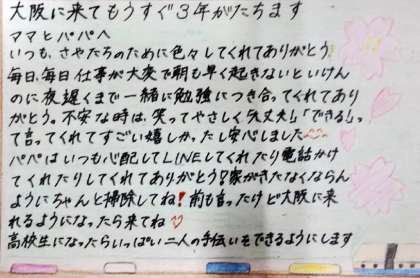 大阪に来てもうすぐ3年がたちます
ママとパパへ
いつも、さやたちのために色々してくれてありがとう!
毎日、毎日仕事が大変で朝も早く起きないといけん
のに夜遅くまで一緒に勉強につき合ってくれてあり
がとう。不安な時は、笑ってやさしく「大丈夫!」「できる!」っ
て言ってくれてすごい嬉しかったし安心しました
パパはいつも心配してLINEしてくれたり電話かけ
てくれたりしてくれてありがとう!家がきたなくならん
ようにちゃんと掃除してね!前も言ったけど大阪に来
れるようになったら来てね
高校生になったらいっぱい二人の手伝いもできるようにします